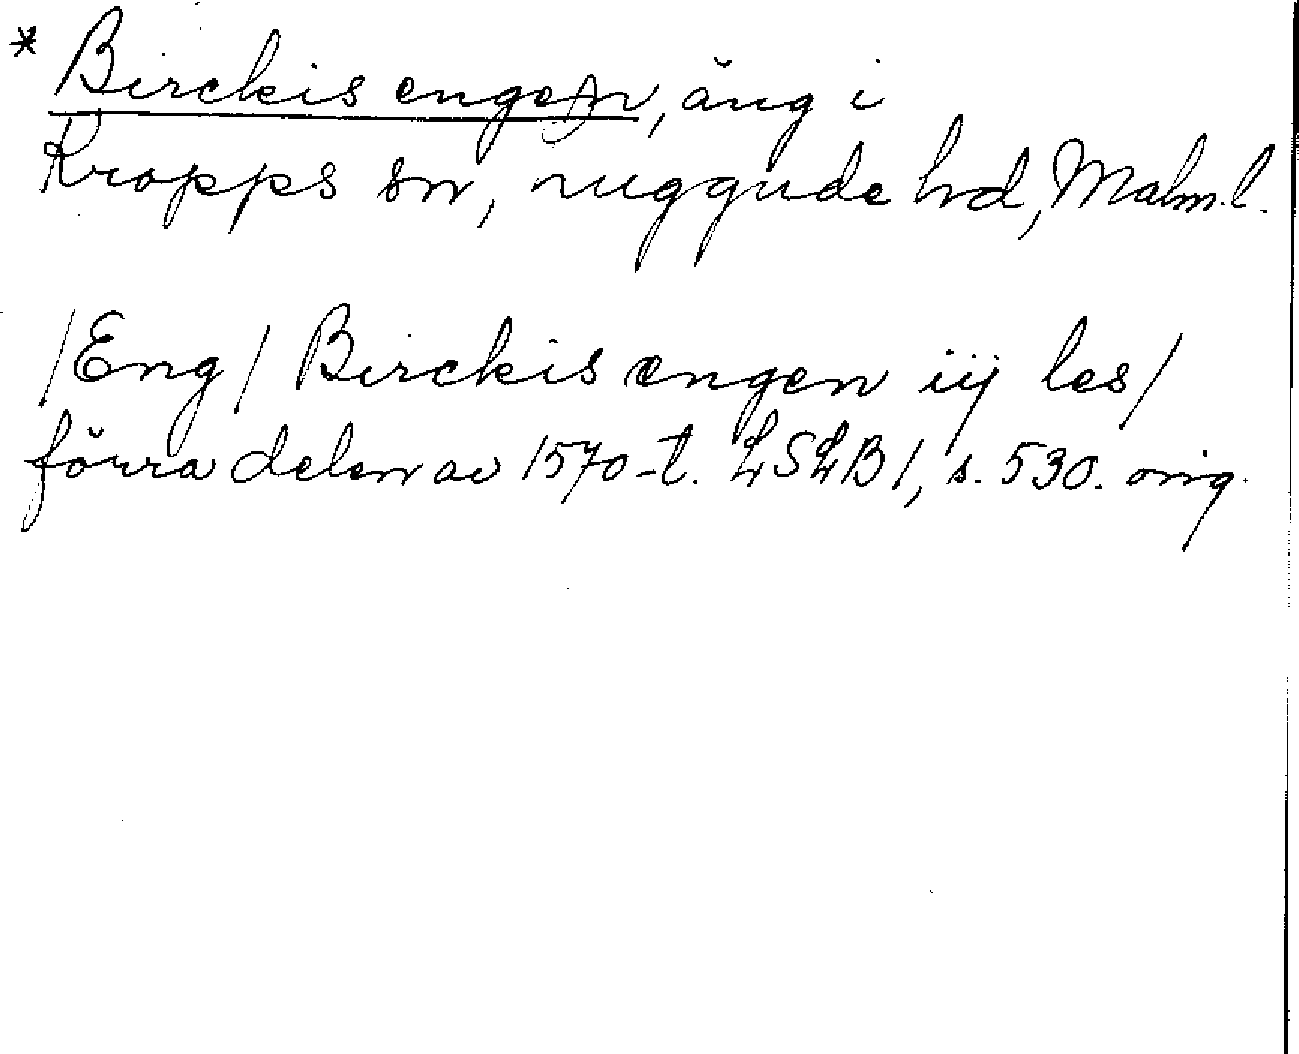 * Birckis engen, äng i
Kropps sn, Luggude hd, Malm.l.
/Eng/ Birckis engen iij les/
förra delen av 1570-t. LSLB 1, s. 530. orig.